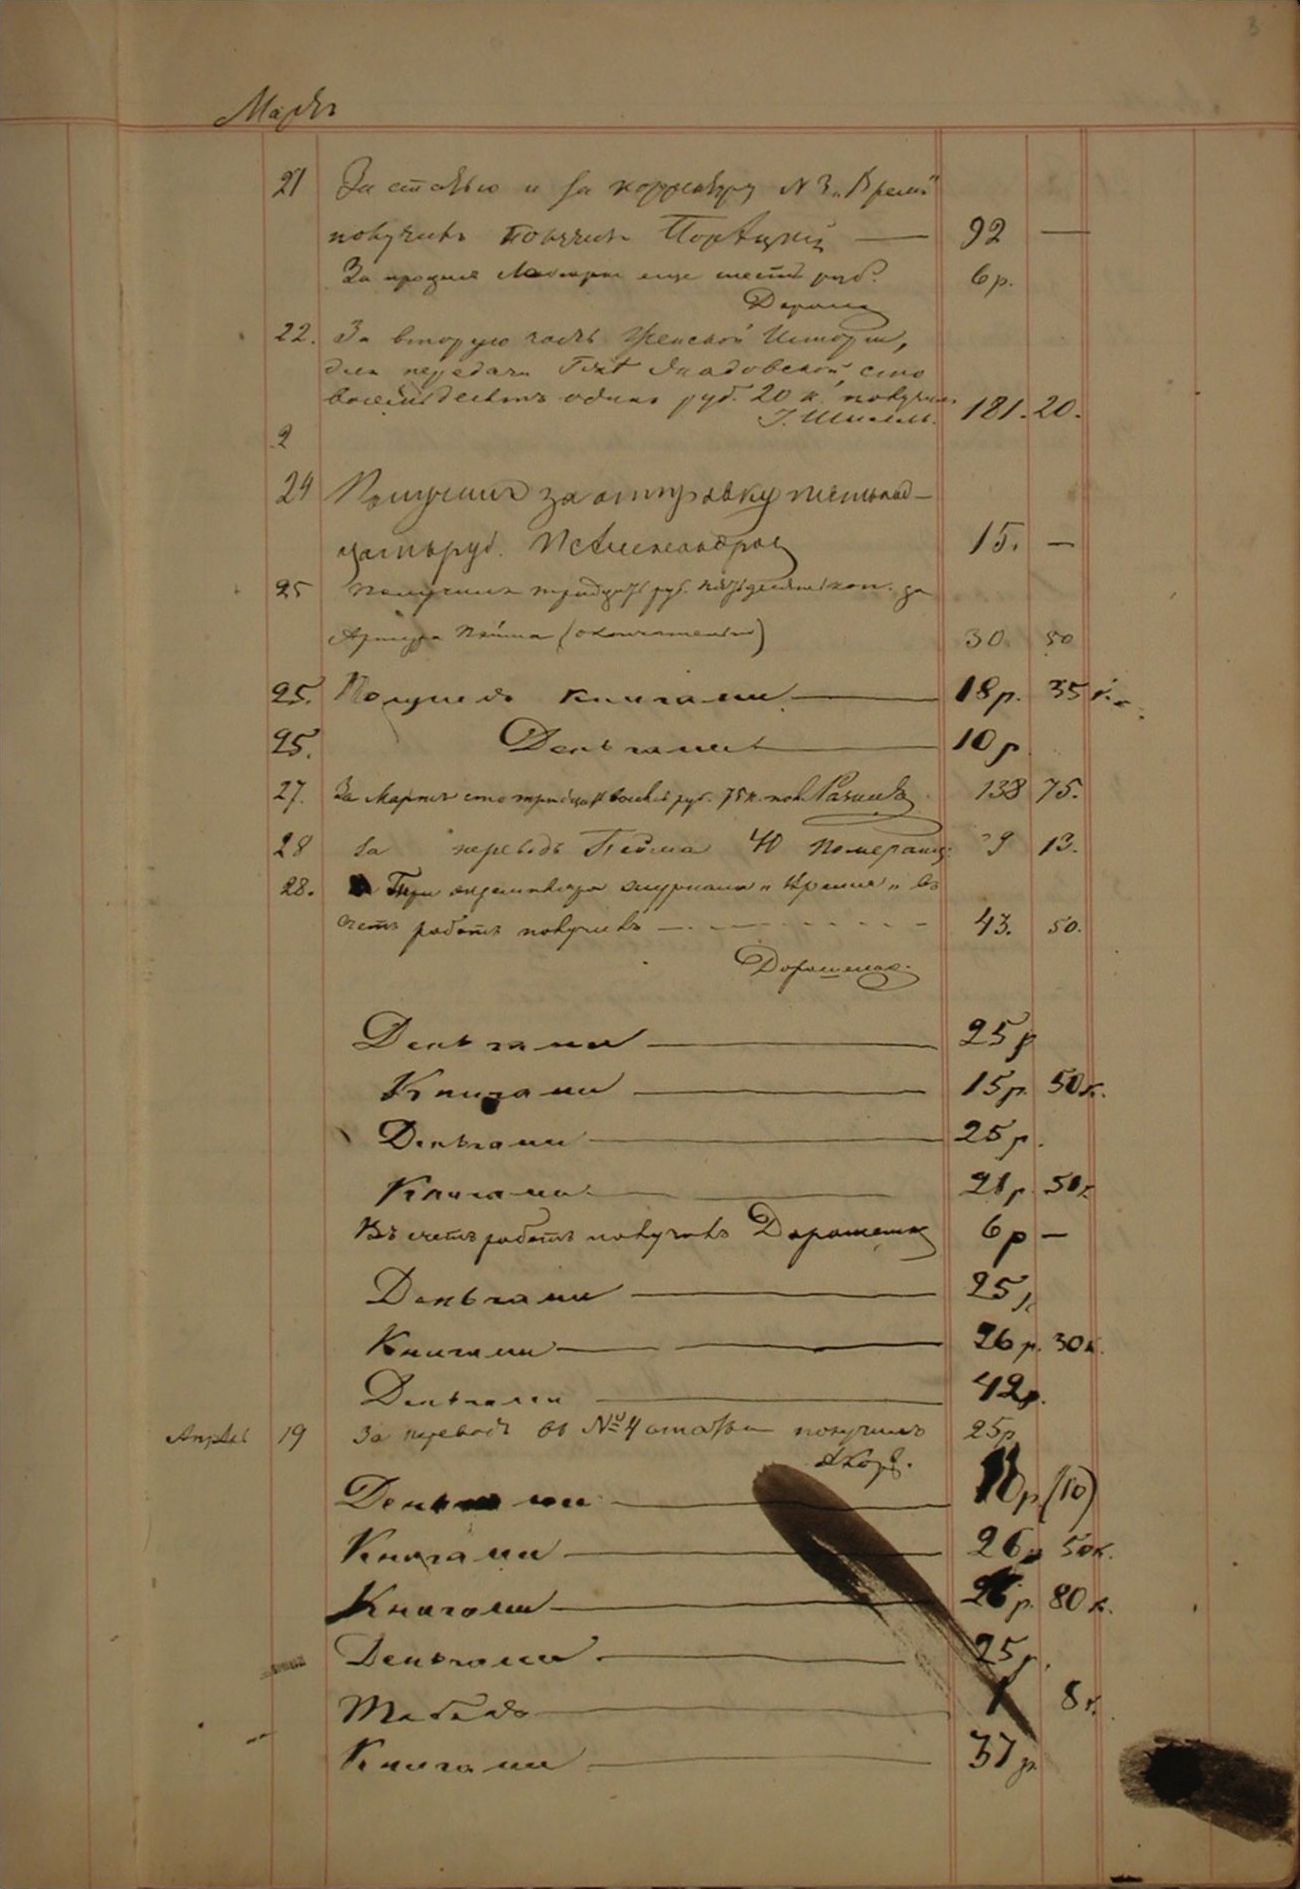 3
Мартъ
21 За статью и за корректуру № 3 „Время"
получилъ Порѣцкій — 92 —
За еще шесть руб. 6 р.
Дорош
22. За вторую часть Женской Истории,
для передачи Гжѣ Жадовской, сто
восемьдесятъ одинъ руб. 20 к. получил 181. 20.
2
24 Получилъ за отправку пятнад-
цать руб. Александров 15. —
25 Получилъ тридцать руб. пятьдесят коп. за
Артура Пейма (окончательно) 30 50
25. Получе книгами — 18 р. 35 к.
25. Деньгами — 10 р
27. За Мартъ сто тридцать восемь руб. 75 к. пол. Разинъ 138 75.
28 За переводъ Пейма 40 Померанц. 39 13.
28. Три экземпляра журнала „Время" въ
счетъ работъ получилъ — 43. 50.
Дорошенко.
Деньгами — 25 р
Книгами — 15 р. 50 к.
Деньгами — 25 р.
Книгами — 21 р. 50 к
Въ счетъ работъ получилъ Дорошенко 6 р —
Деньгами — 25 р
Книгами — 26 р. 30 к.
Деньгами — 42 р.
Апрѣль 19 За переводъ въ № 4 статьи получилъ 25 р
Деньгами — 10 р (10)
Книгами — 26 р 50 к.
Книгами — 26 р. 80 к.
Деньгами — 25 р.
Табакъ — 1 8 к.
Книгами — 37 р.